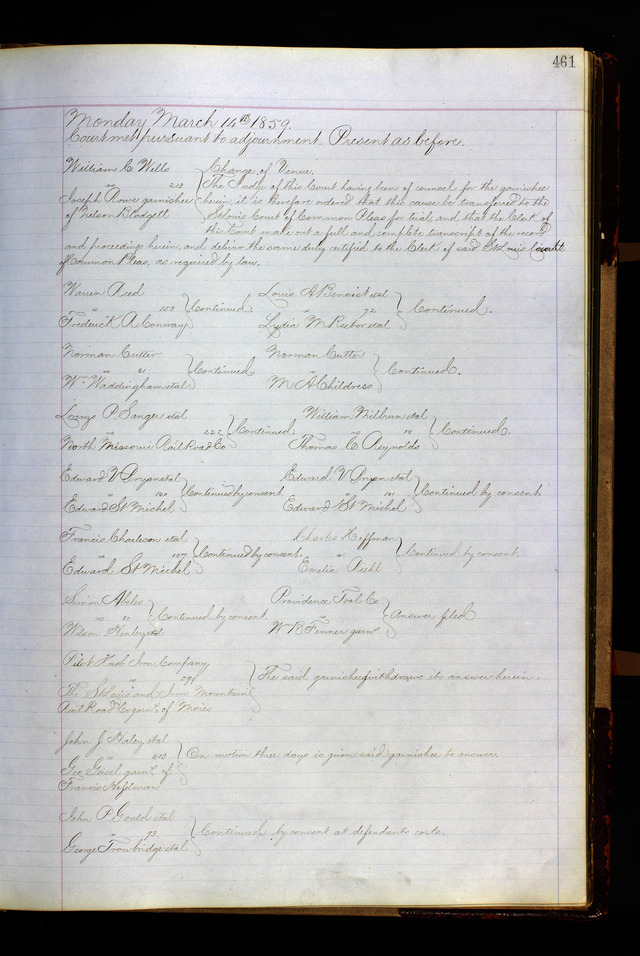 461
Monday March 14th 1859.
Court met pursuant to adjournment. Present as before.
William C Wells Change of Venue.
vs 213 The Judge of this Court having been of counsel for the garnishee
Joseph Rowe garnishee herein, it is therefore ordered that this cause be transferred to the
of Nelson Blodgett St Louis Court of Common Pleas for trial, and that the Clerk of
this Court make out a full and complete transcript of the record
and proceedings herein, and deliver the same duly certified to the Clerk of said St Louis Court
of Common Pleas, as required by law.
Warren Reed Louis A Benoist etal
vs 153 Continued vs 72 Continued.
Frederick A Conway Lydia M Rector etal
Norman Cutter Norman Cutter
vs 61 Continued vs Continued.
Wm Waddingham etal M A Childress
Lorenzo P Sanger etal William Milburn etal
vs 222 Continued. vs 18 Continued.
North Missouri Rail Road Co Thomas C Reynolds
Edward V Dryan etal Edward V Dryan etal
vs 160 Continued by consent vs 161 Continued by consent
Edward St Michel Edward St Michel
Francis Charleson etal Charles Hoffman
vs 157 Continued by consent. vs Continued by consent.
Edward St Michel Emelia Riehl
Simon Abeles Providence Tool Co
vs 80 Continued by consent. vs Answer filed.
Wilson Henley etal W B Finner garne
Pilot Knob Iron Company
vs 291 The said garnishee withdraws its answer herein.
The St Louis and Iron Mountain
Rail Road Co garn. of Moies
John J Haley etal
vs 513 On motion three days is given said garnishee to answer.
Geo Geisel garne of
Francis
John P Gould etal
vs 93 Continued by consent at defendants costs.
George Trowbridge etal